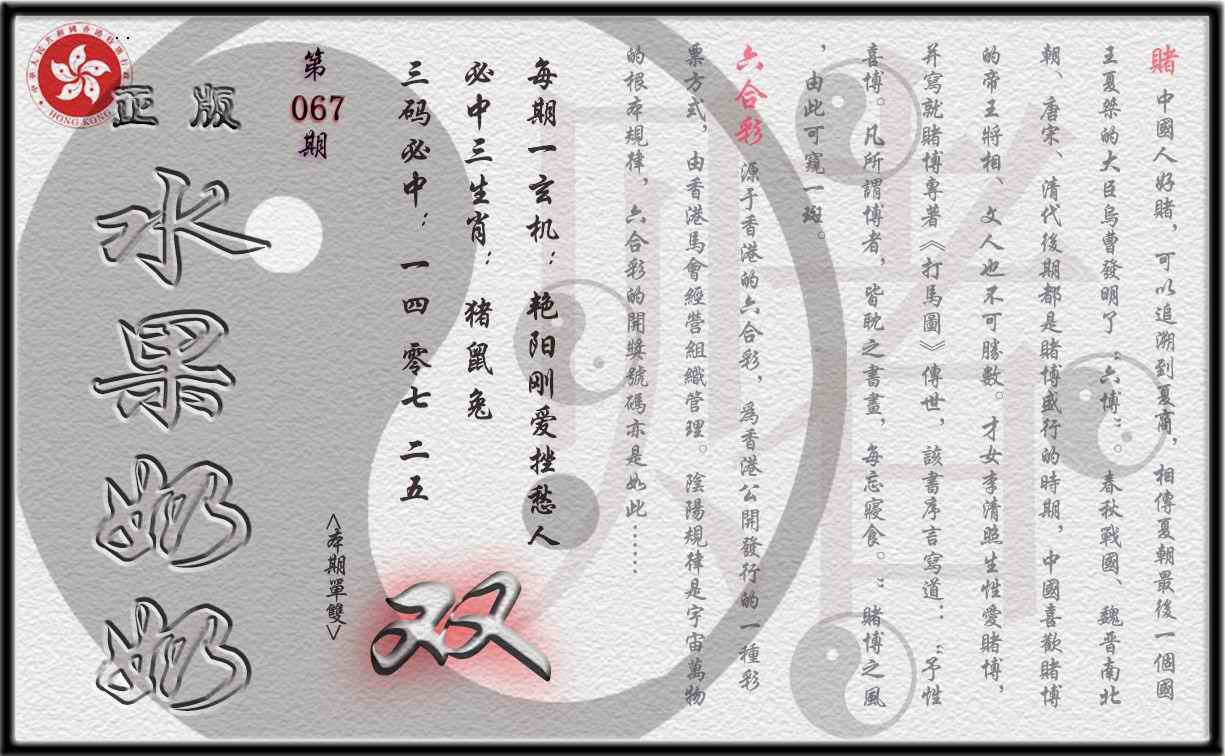 賭 中國人好賭，可以追溯到夏商，相傳夏朝最後一個國
王夏桀的大臣烏曹發明了“六博”。春秋戰國、魏晋南北
朝、唐宋、清代後期都是賭博盛行的時期，中國喜歡賭博
的帝王將相、文人也不可勝數。才女李清照生性愛賭博，
并寫就賭博專著《打馬圖》傳世，該書序言寫道：“予性
喜博。凡所謂博者，皆耽之書畫，每忘寢食。”賭博之風
，由此可窺一斑。
六合彩 源于香港的六合彩，爲香港公開發行的一種彩
票方式，由香港馬會經營組織管理。陰陽規律是宇宙萬物
的根本規律，六合彩的開獎號碼亦是如此……
每期一玄机：艳阳刚爱挫愁人
必中三生肖：猪鼠兔
三码必中：一四 零七 二五
<本期單雙>
双
第
067
期
正版
水果奶奶
中華人民共和國香港特別行政區
HONG KONG